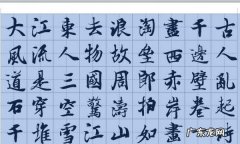 大江東去浪淘盡千古
風流人物故壘西邊人
道是三國周郎赤壁亂
石穿空驚濤拍岸卷起
千堆雪江山如畫